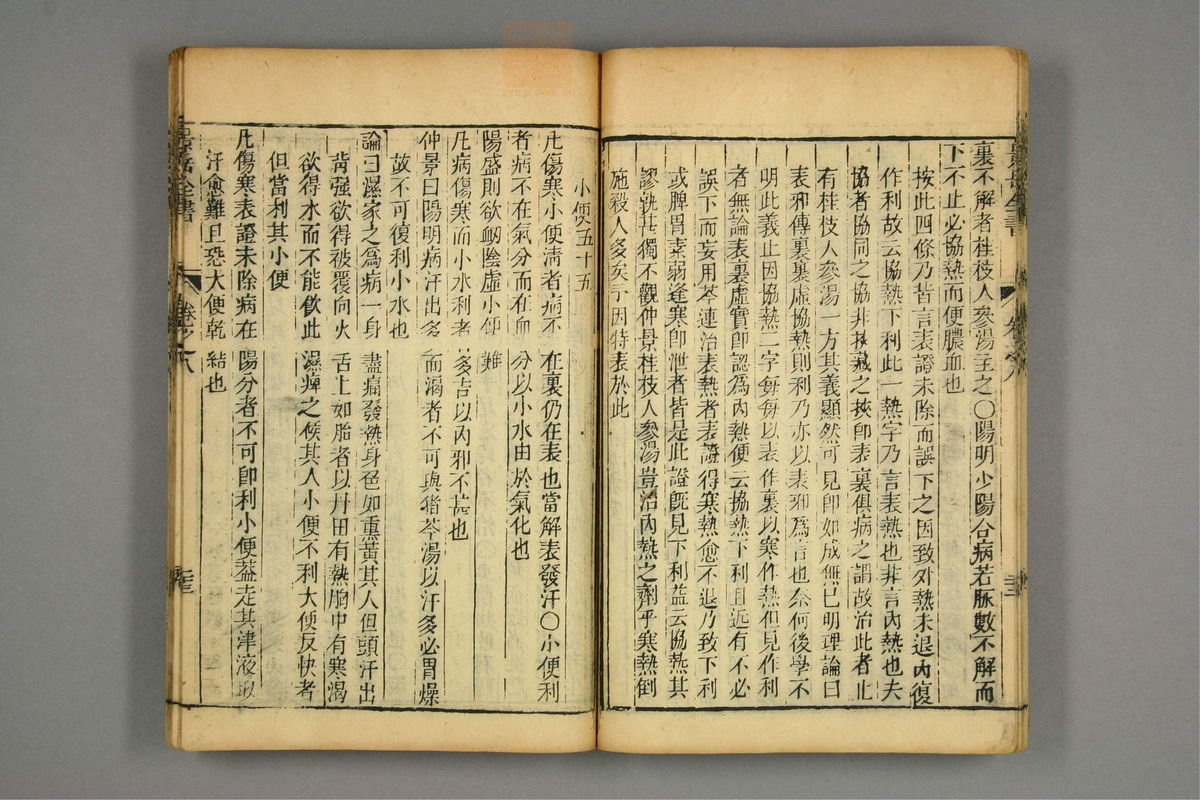 景岳全書
裏不解者桂枝人參湯主之〇陽明少陽合病若脉數不解而
下不止必協熱而便膿血也
按此四條乃皆言表證未除而誤下之因致外熱未退內復
作利故云協熱下利此一熱字乃言表熱也非言內熱也夫
協者協同之協非挾藏之挾卽表裏俱病之謂故治此者止
有桂枝人參湯一方其義顯然可見卽如成無已明理論曰
表邪傳裏裏虛協熱則利乃亦以表邪爲言也奈何後學不
明此義止因協熱二字每每以表作裏以寒作熱但見作利
者無論表裏虛實卽認爲內熱便云協熱下利且近有不必
誤下而妄用芩連治表熱者表證得寒熱愈不退乃致下利
或脾胃素弱逢寒卽泄者皆是此證旣見下利益云協熱其
謬孰甚獨不觀仲景桂枝人參湯豈治內熱之劑乎寒熱倒
施殺人多矣予因特表於此
小便五十五
凡傷寒小便清者病不在裏仍在表也當解表發汗〇小便利
者病不在氣分而在血分以小水由於氣化也
陽盛則欲衂陰虛小便難
凡病傷寒而小水利者多吉以內邪不甚也
仲景曰陽明病汗出多而渴者不可與猪苓湯以汗多必胃燥
故不可復利小水也
論曰濕家之爲病一身盡痛發熱身色如熏黃其人但頭汗出
背强欲得被覆向火舌上如胎者以丹田有熱胸中有寒渴
欲得水而不能飲此濕痺之候其人小便不利大便反快者
但當利其小便
凡傷寒表證未除病在陽分者不可卽利小便葢走其津液取
汗愈難且恐大便乾結也
景岳全書